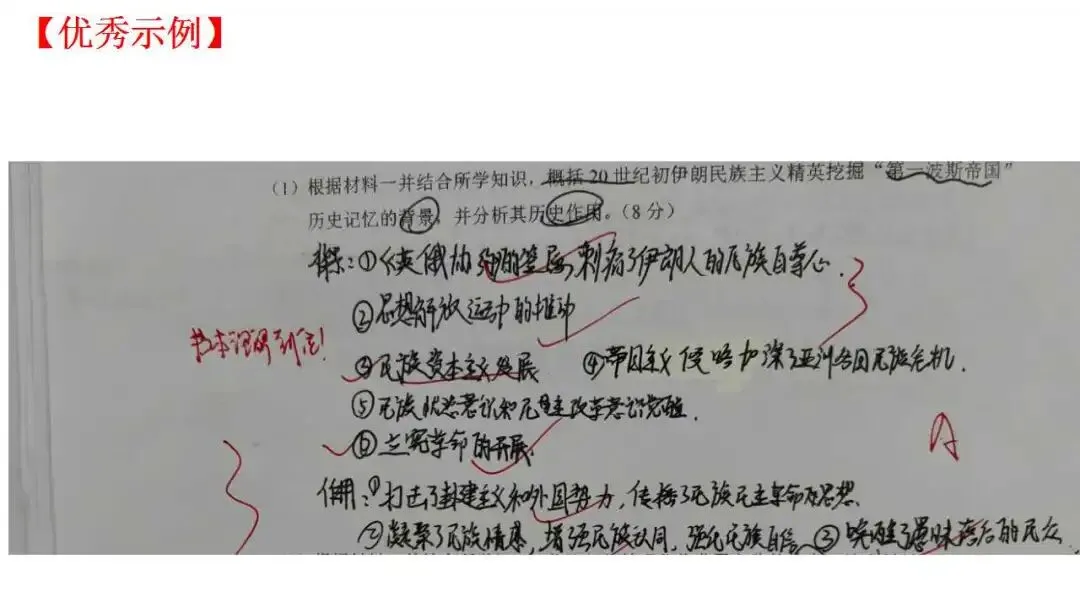 【优秀示例】
(1) 根据材料一并结合所学知识，概括20世纪初伊朗民族主义精英挖掘“第一波斯帝国”
历史记忆的背景，并分析其历史作用。(8分)
背景：①《英俄协约》的签署，刺痛了伊朗人的民族自尊心．
②思想解放运动的推动
③民族资本主义发展 ④帝国主义侵略加深了亚洲各国民族危机．
书本理解到位！
⑤民族忧患意识和民主改革意识觉醒．
⑥立宪革命的开展
3
3
A
作用：①打击了封建主义和外国势力，传播了民族民主革命思想．
②凝聚了民族情感，增强民族认同，强化民族自信 ③唤醒了愚昧落后的民众